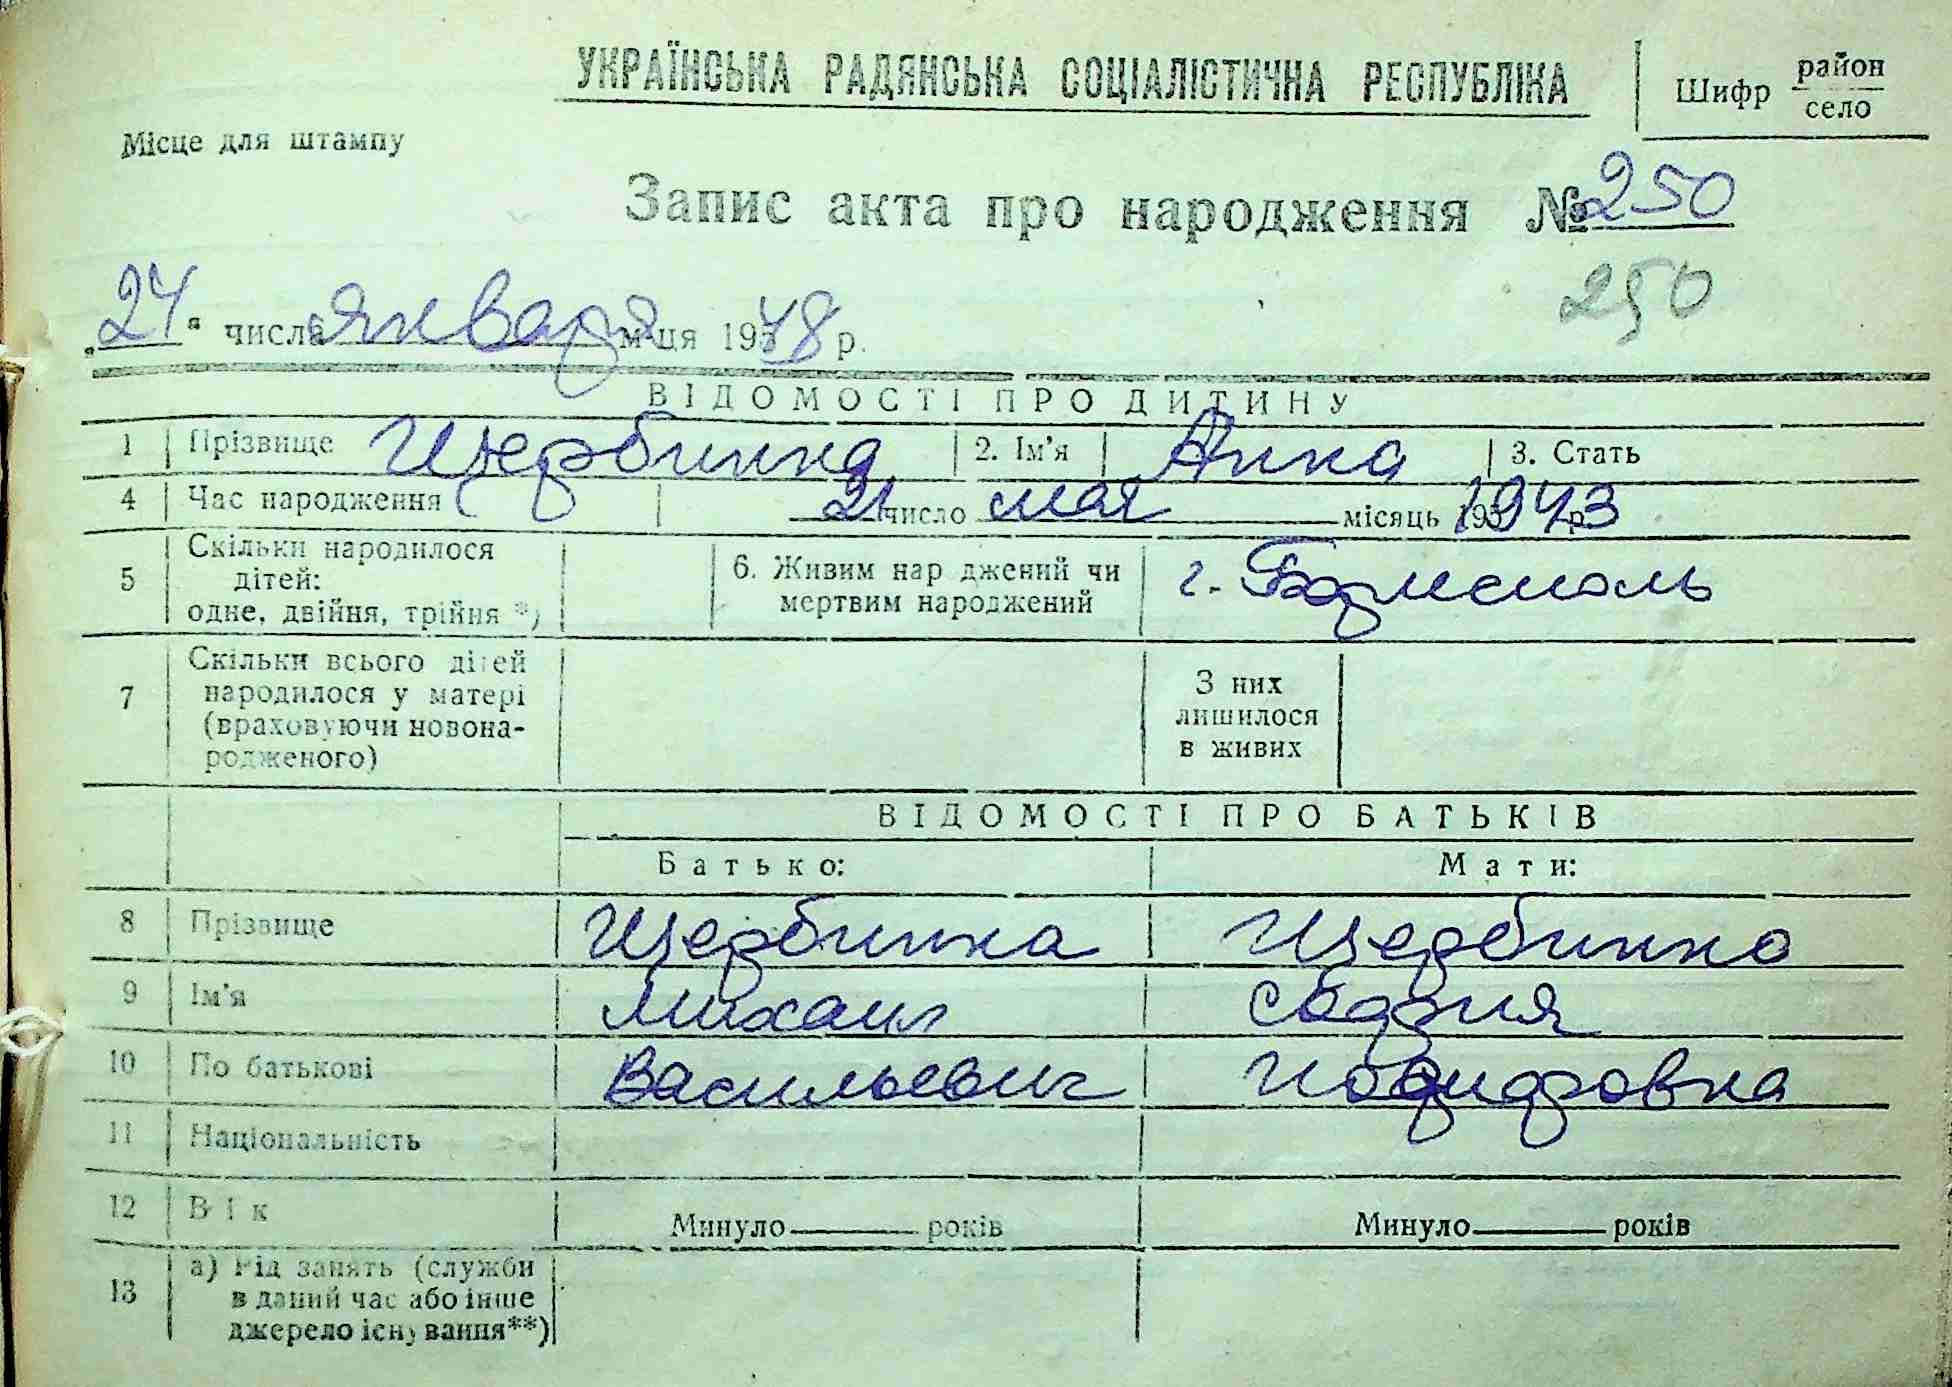 УКРАЇНСЬКА РАДЯНСЬКА СОЦІАЛІСТИЧНА РЕСПУБЛІКА
Шифр район
село
Місце для штампу
Запис акта про народження № 250
250
„24“ числа января м-ця 1948 р.
ВІДОМОСТІ ПРО ДИТИНУ
1 Прізвище Щербинка 2. Ім'я Анна 3. Стать
4 Час народження 21 число мая місяць 1943 р.
5 Скільки народилося дітей: одне, двійня, трійня *) 6. Живим народжений чи мертвим народжений г. Борисполь
7 Скільки всього дітей народилося у матері (враховуючи новонародженого) З них лишилося в живих
ВІДОМОСТІ ПРО БАТЬКІВ
Батько: Мати:
8 Прізвище Щербинка Щербинка
9 Ім'я Михаил София
10 По батькові Васильевич
11 Національність
12 Вік Минуло років Минуло років
13 а) Рід занять (служби в даний час або інше джерело існування**)